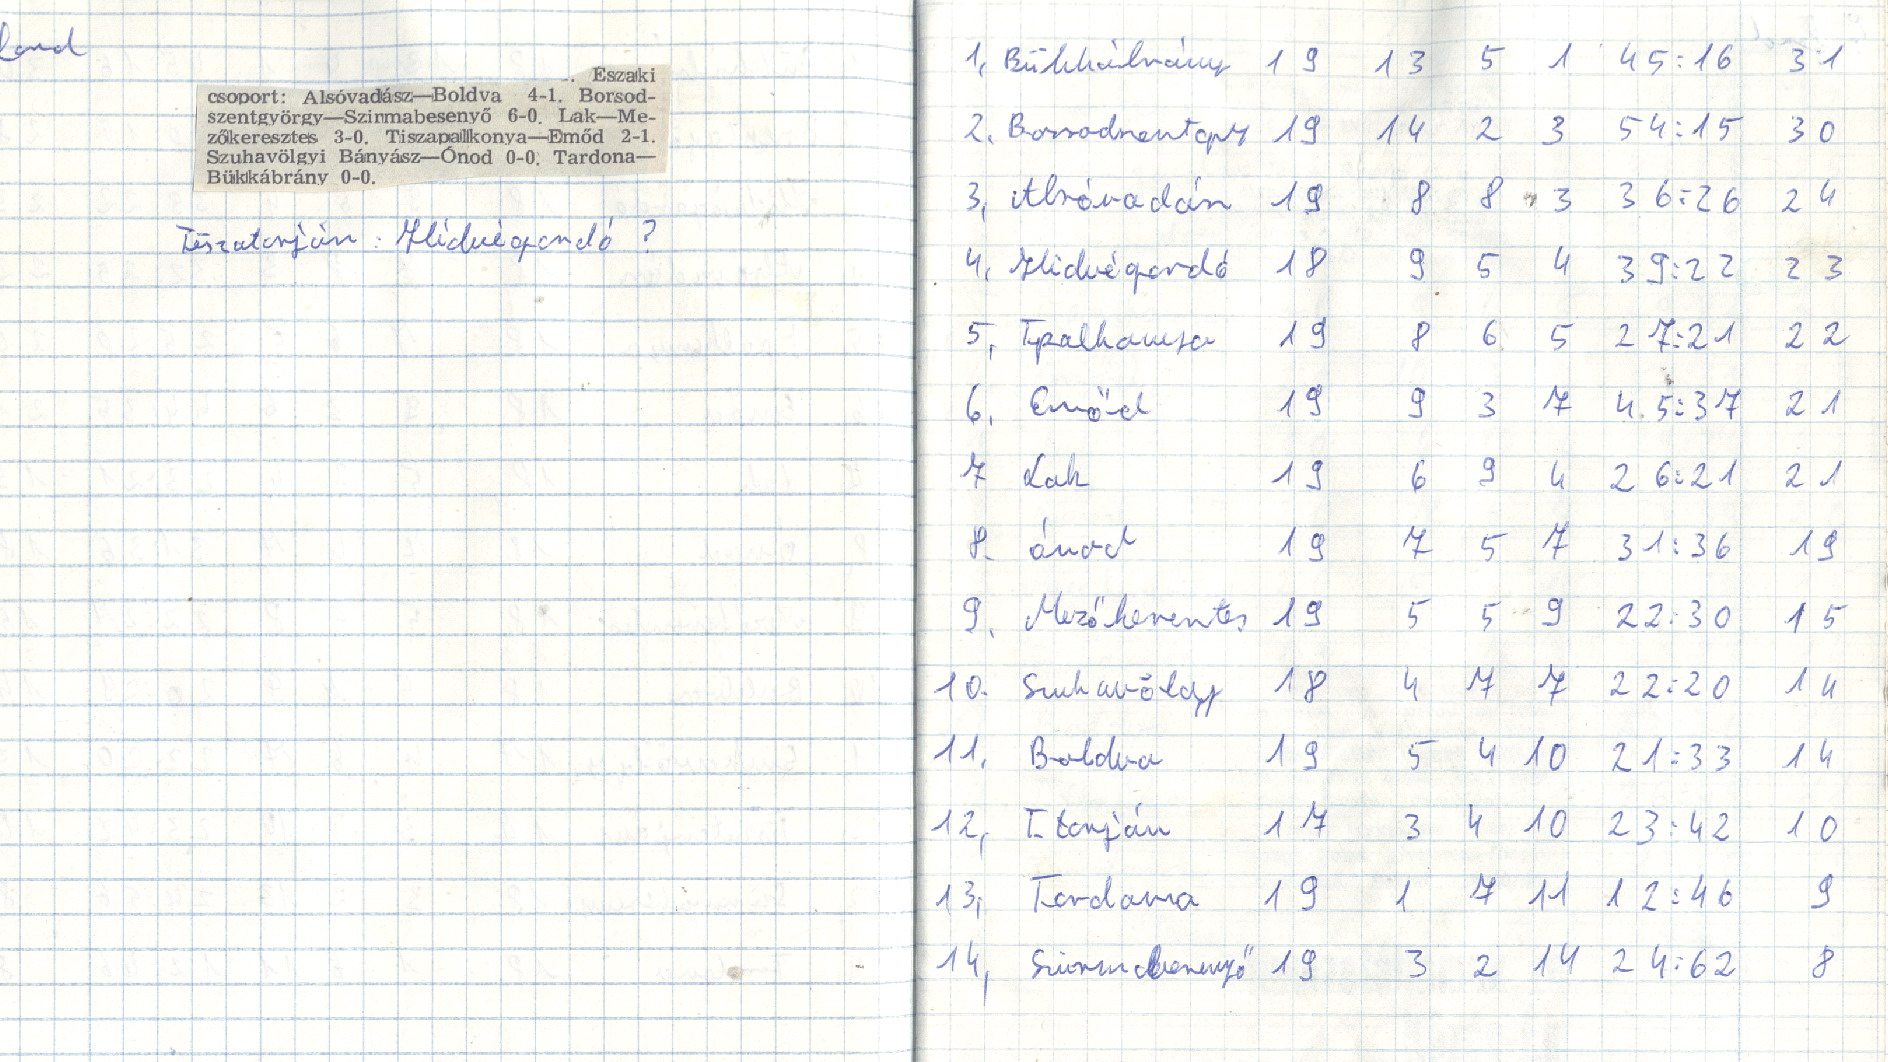 . Északi
csoport: Alsóvadász—Boldva 4-1. Borsod-
szentgyörgy—Szirmabesenyő 6-0. Lak—Me-
zőkeresztes 3-0. Tiszapalkonya—Emőd 2-1.
Szuhavölgyi Bányász—Ónod 0-0. Tardona—
Bükkábrány 0-0.
Tiszatarján : Hidvégardó ?
1, Bükkábrány 19 13 5 1 45:16 31
2. Borsodszentgy 19 14 2 3 54:15 30
3, Alsóvadász 19 8 8 3 36:26 24
4, Hidvégardó 18 9 5 4 39:22 23
5, Tpalkonya 19 8 6 5 27:21 22
6, Emőd 19 9 3 7 45:37 21
7 Lak 19 6 9 4 26:21 21
8. Ónod 19 7 5 7 31:36 19
9. Mezőkeresztes 19 5 5 9 22:30 15
10. Szuhavölgy 18 4 7 7 22:20 14
11, Boldva 19 5 4 10 21:33 14
12, T.tarján 17 3 4 10 23:42 10
13, Tardona 19 1 7 11 12:46 9
14, Szirmabesenyő 19 3 2 14 24:62 8